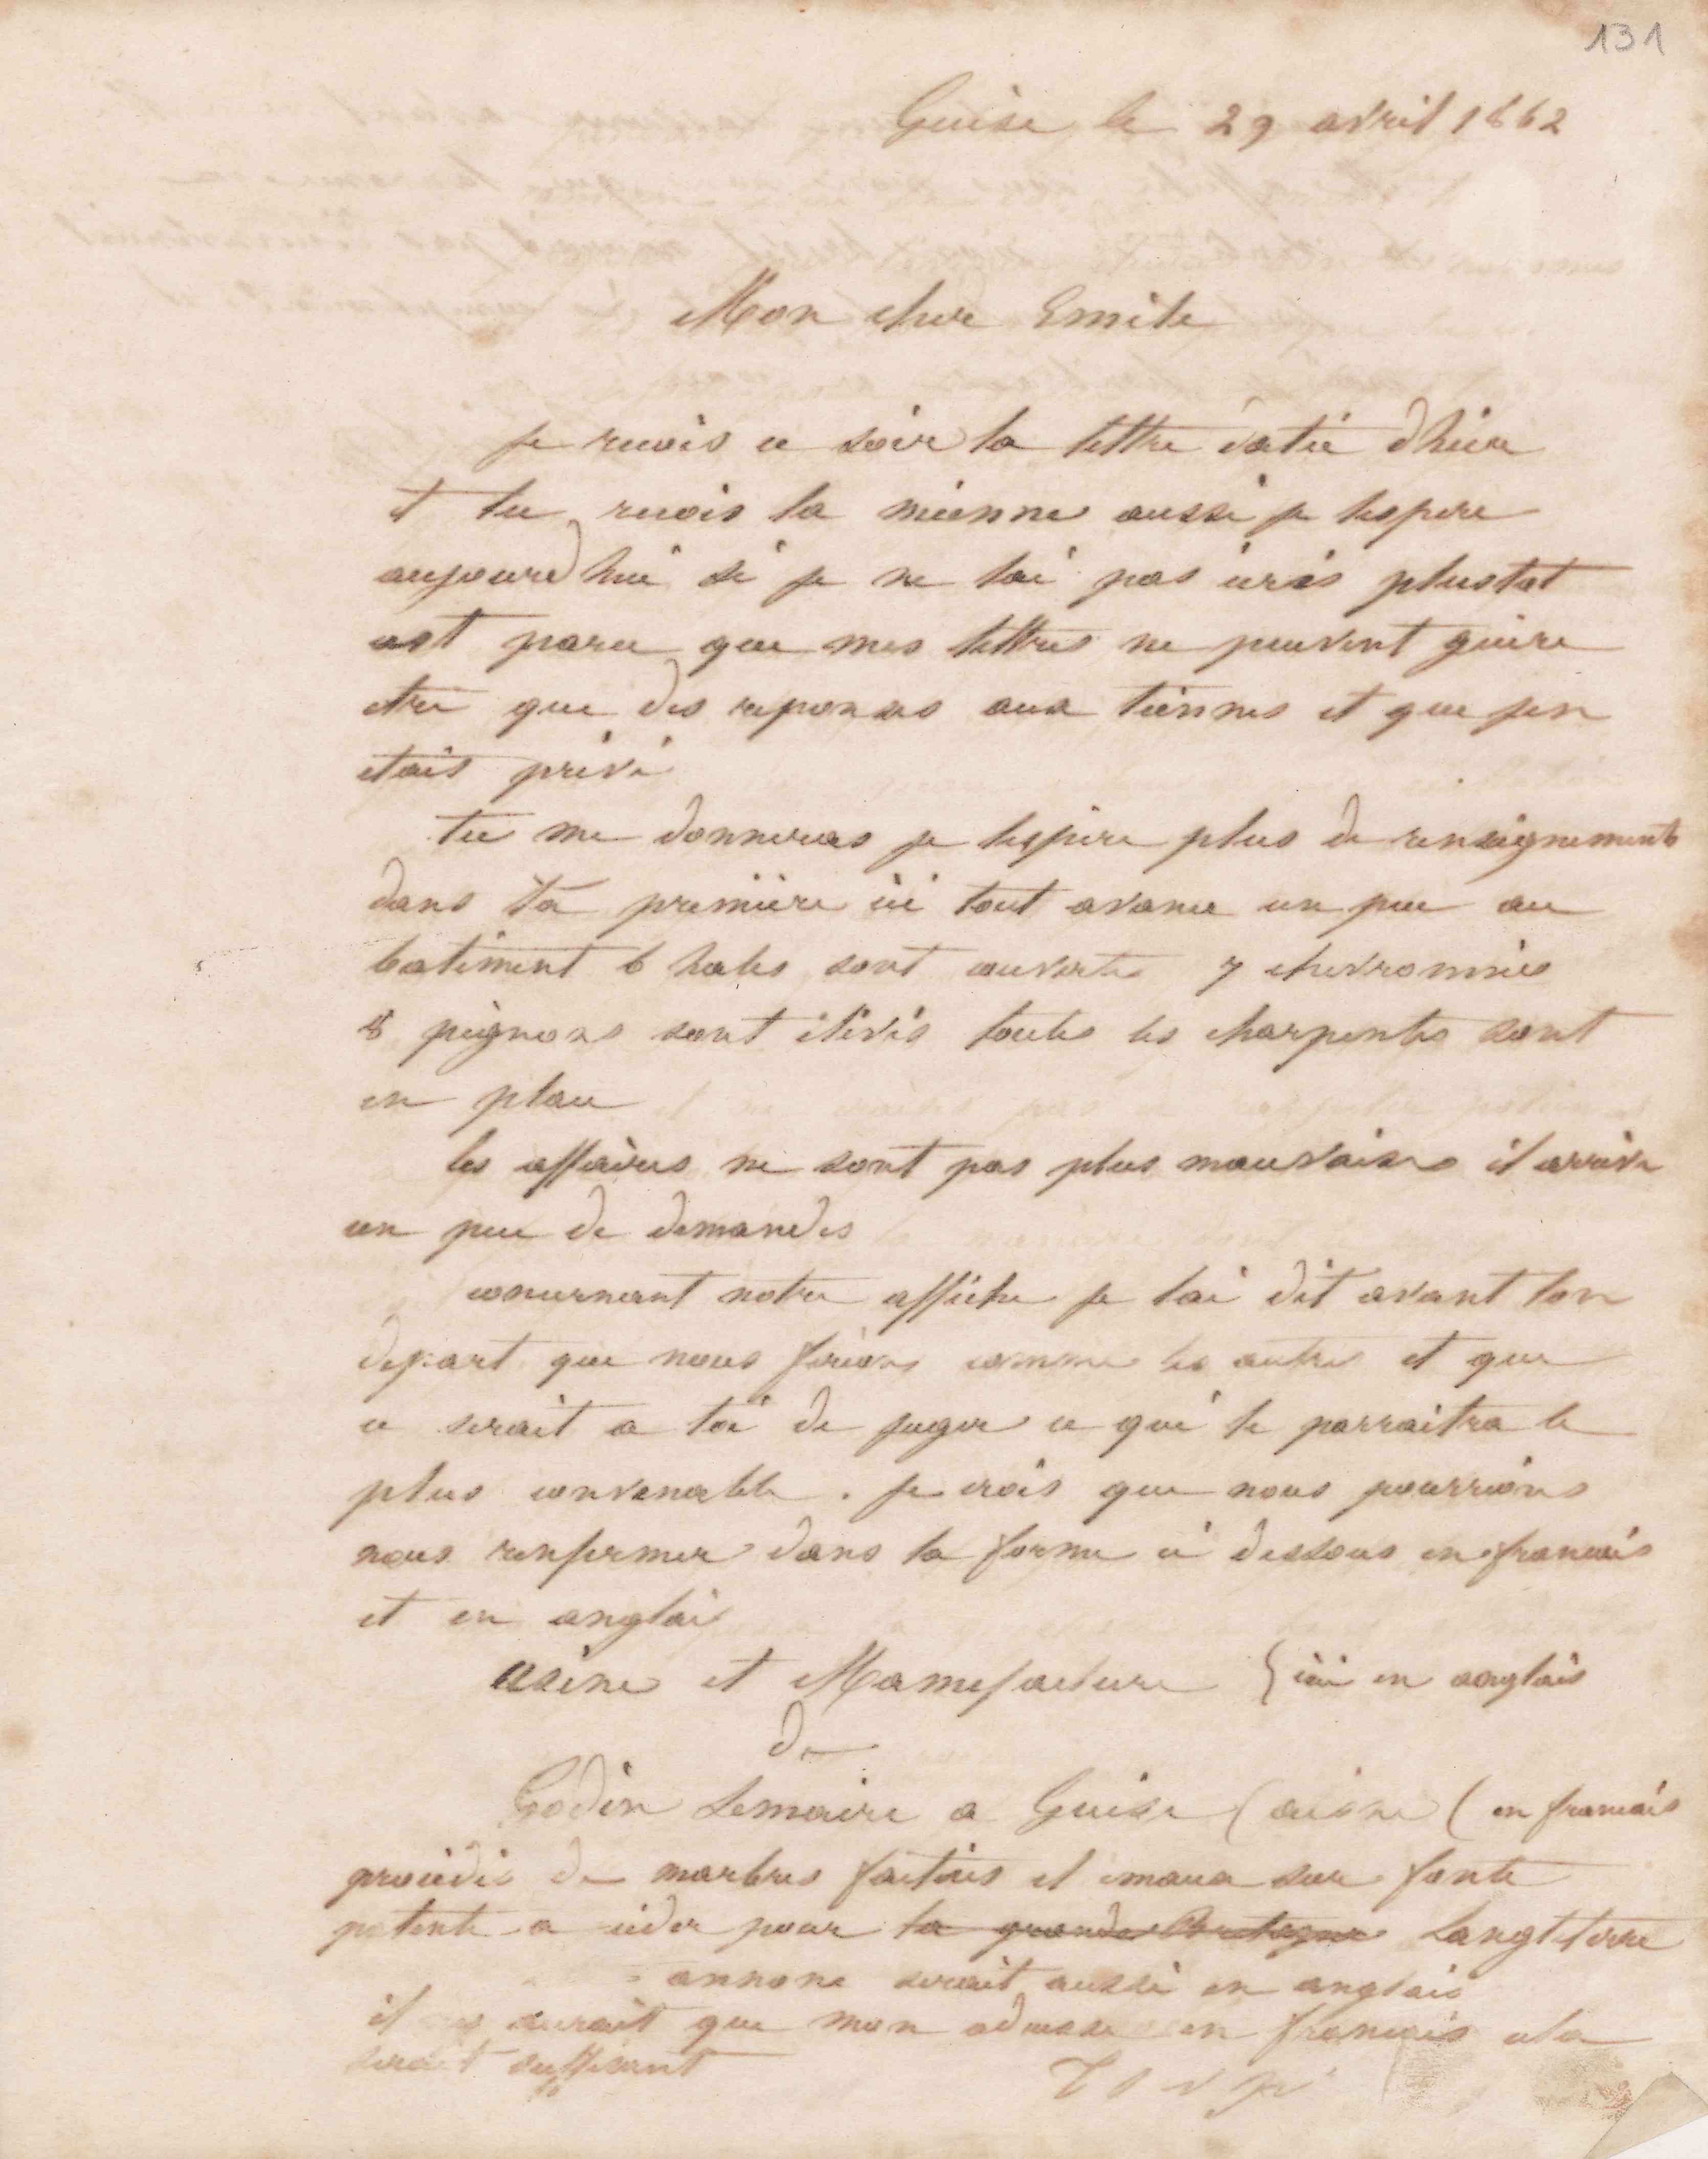 131
Guise le 29 avril 1862
Mon cher Emile
je recois ce soir ta lettre datée dhier
et tu recois la mienne aussi je lespere
aujourdhui si je ne tai pas ecris plustot
cest parce que mes lettres ne peuvent guere
etre que des reponses aux tiennes et que jen
etais privé
tu me donneras je lespere plus de renseignements
dans ta premiere ici tout avance un peu au
batiment 6 halles sont couvertes 7 chevronnées
8 pignons sont élevés toutes les charpentes sont
en place
les affaires ne sont pas plus mauvaises il arrive
un peu de demandes
concernant notre affiche je tai dit avant ton
depart que nous ferions comme les autres et que
ce serait a toi de juger ce qui te parraitra le
plus convenable. je crois que nous pourrions
nous renfermer dans la forme ci dessous en francais
et en anglais
usine et Manufacture } ici en anglais
de
Godin Lemaire a Guise (aisne ( en francais
procédés de marbres factices et emaux sur fonte
patente a ceder pour la grande Bretagne Langleterre
annonce serait aussi en anglais
il ny aurait que mon adresse en francais cela
serait suffisant
T S V P